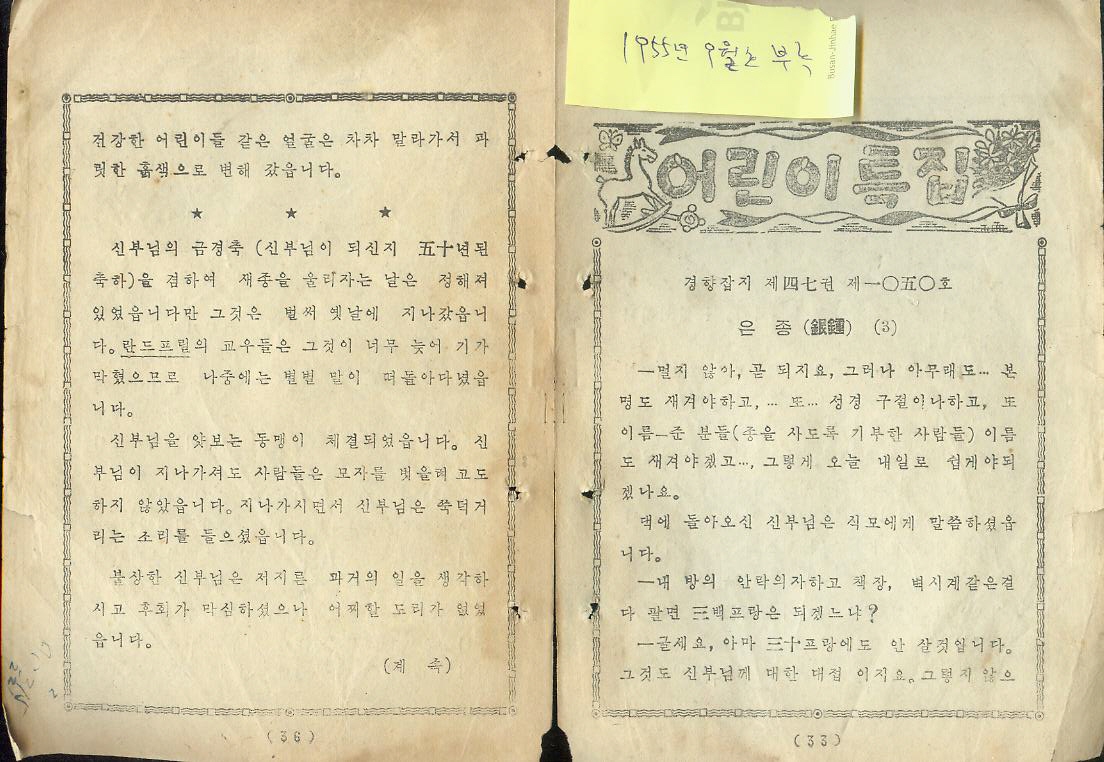 건강한 어린이들 같은 얼굴은 차차 말라가서 파
릿한 흙색으로 변해 갔읍니다。
★ ★ ★
신부님의 금경축 (신부님이 되신지 五十년된
축하)을 겸하여 새종을 울리자는 날은 정해져
있었읍니다만 그것은 벌써 옛날에 지나갔읍니
다。란드프릴의 교우들은 그것이 너무 늦어 기가
막혔으므로 나중에는 별별 말이 떠돌아다녔읍
니다。
신부님을 얏보는 동맹이 체결되었읍니다。 신
부님이 지나가셔도 사람들은 모자를 벗을려고도
하지 않았읍니다。지나가시면서 신부님은 쑥덕거
리는 소리를 들으셨읍니다。
불상한 신부님은 저지른 과거의 일을 생각하
시고 후회가 막심하셨으나 어찌할 도리가 없었
읍니다。
(계 속)
(36)
1955년 9월호 부록
Busan-Jinhae
어린이특집
경향잡지 제四七권 제一〇五〇호
은 종 (銀鍾) (3)
―멀지 않아, 곧 되지요, 그러나 아무래도… 본
명도 새겨야하고, … 또… 성경 구절이나하고, 또
이름―준 분들(종을 사도록 기부한 사람들) 이름
도 새겨야겠고…, 그렇게 오늘 내일로 쉽게야되
겠나요。
댁에 돌아오신 신부님은 식모에게 말씀하셨읍
니다。
―내 방의 안락의자하고 책장, 벽시계같은걸
다 팔면 三백프랑은 되겠느냐?
―글세요, 아마 三十프랑에도 안 살것입니다。
그것도 신부님께 대한 대접 이지요。그렇지 않으
(33)